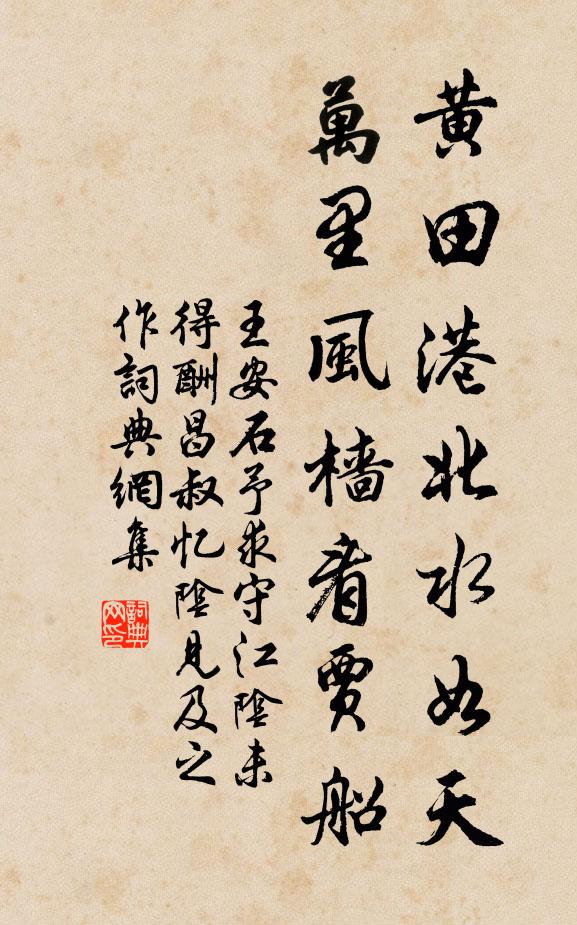 黄田港北水如天
萬里風檣看賈船
王安石予求守江陰未
得酬昌叔忆陰見及之
作詞典網集
詞典网印